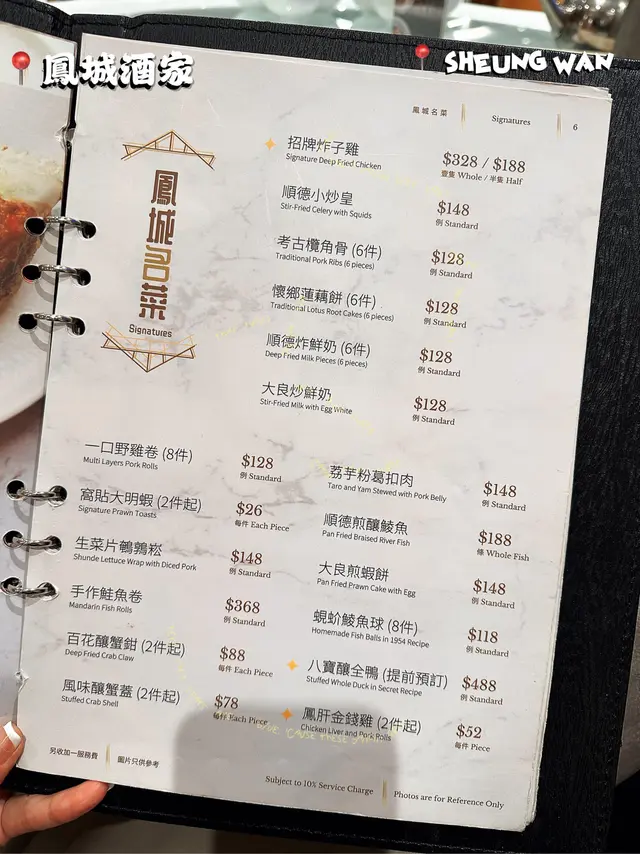 鳳城酒家
SHEUNG WAN
鳳城名菜
Signatures
6
鳳城名菜
Signatures
招牌炸子雞
Signature Deep Fried Chicken
$328 / $188
壹隻 Whole / 半隻 Half
順德小炒皇
Stir-Fried Celery with Squids
$148
例 Standard
考古欖角骨 (6件)
Traditional Pork Ribs (6 pieces)
$128
例 Standard
懷鄉蓮藕餅 (6件)
Traditional Lotus Root Cakes (6 pieces)
$128
例 Standard
順德炸鮮奶 (6件)
Deep Fried Milk Pieces (6 pieces)
$128
例 Standard
大良炒鮮奶
Stir-Fried Milk with Egg White
$128
例 Standard
一口野雞卷 (8件)
Multi Layers Pork Rolls
$128
例 Standard
窩貼大明蝦 (2件起)
Signature Prawn Toasts
$26
每件 Each Piece
生菜片鵪鶉崧
Shunde Lettuce Wrap with Diced Pork
$148
例 Standard
手作鮭魚卷
Mandarin Fish Rolls
$368
例 Standard
百花釀蟹鉗 (2件起)
Deep Fried Crab Claw
$88
每件 Each Piece
風味釀蟹蓋 (2件起)
Stuffed Crab Shell
$78
每件 Each Piece
荔芋粉葛扣肉
Taro and Yam Stewed with Pork Belly
$148
例 Standard
順德煎釀鯪魚
Pan Fried Braised River Fish
$188
條 Whole Fish
大良煎蝦餅
Pan Fried Prawn Cake with Egg
$148
例 Standard
蜆蚧鯪魚球 (8件)
Homemade Fish Balls in 1954 Recipe
$118
例 Standard
八寶釀全鴨 (提前預訂)
Stuffed Whole Duck in Secret Recipe
$488
例 Standard
鳳肝金錢雞 (2件起)
Chicken Liver and Pork Rolls
$52
每件 Piece
另收加一服務費
圖片只供參考
Subject to 10% Service Charge
Photos are for Reference Only